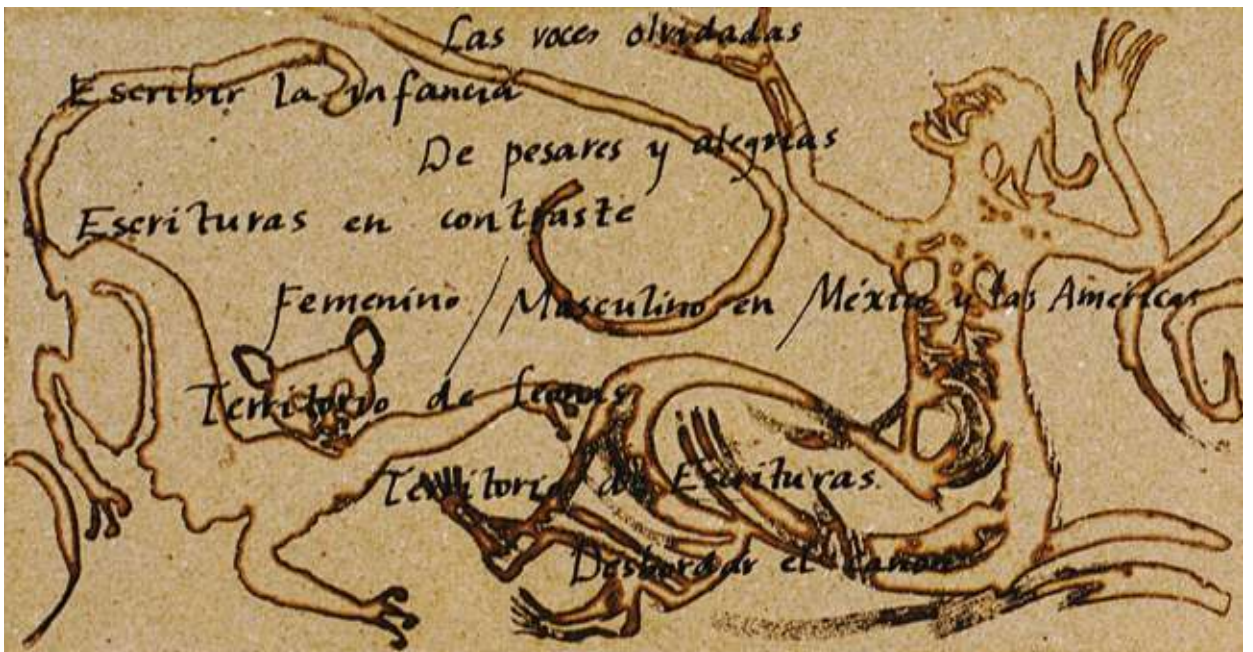 Las voces olvidadas
Escribir la infancia
De pesares y alegrías
Escrituras en contraste
Femenino / Masculino en / México y las Américas
Territorio de leonas
Territorio de Escrituras.
Desbordar el canon